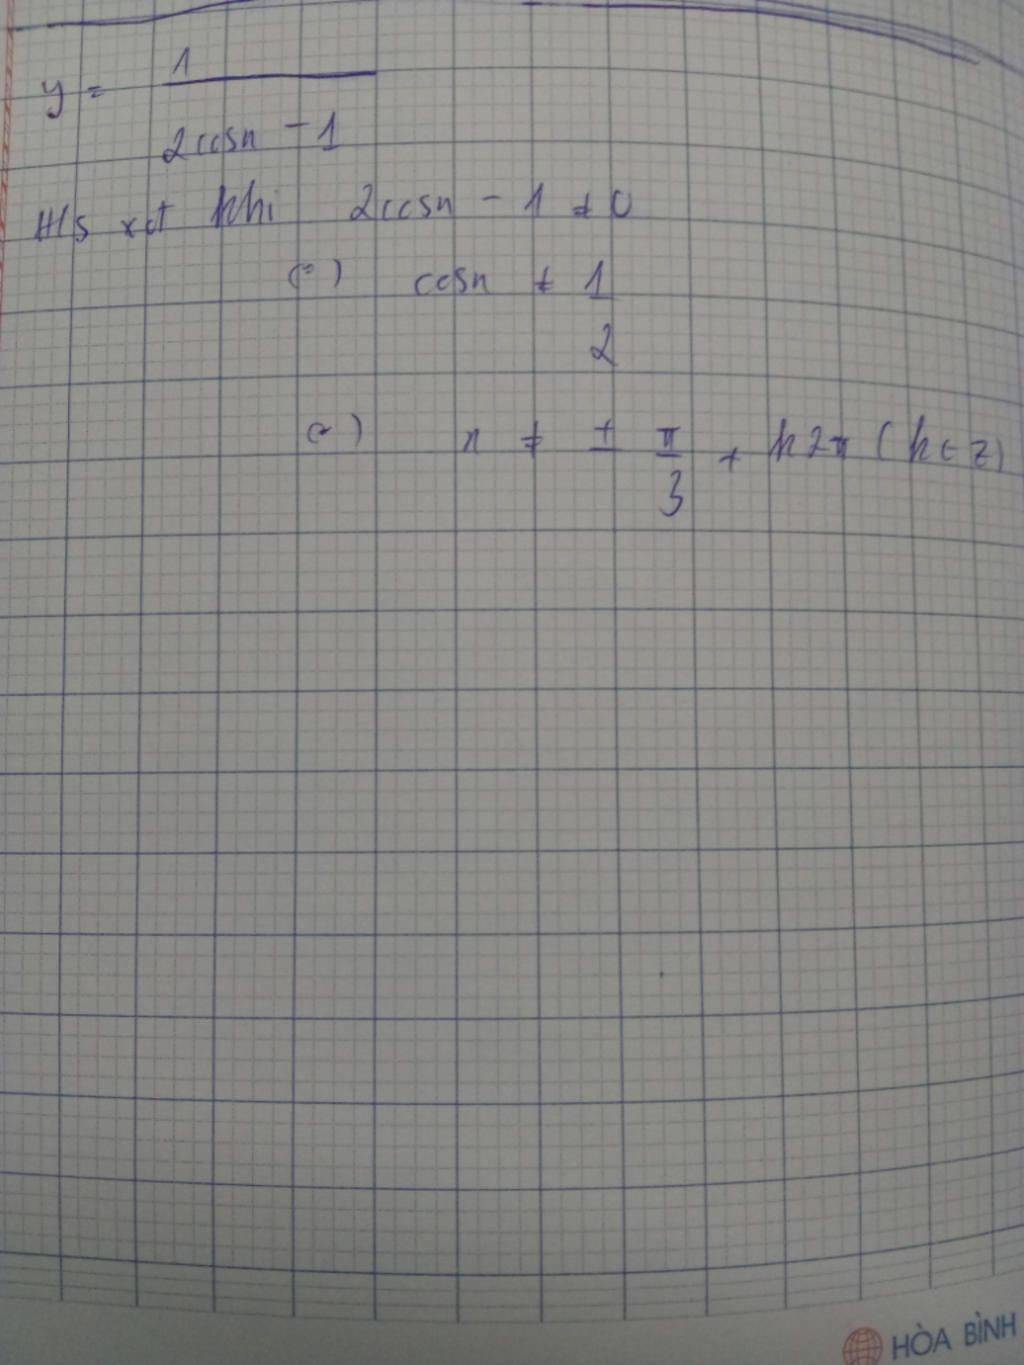 y = 1 / 2cosx - 1
H/s xđ khi 2cosx - 1 ≠ 0
(=) cosx ≠ 1/2
(=) x ≠ ± π/3 + k2π (k ∈ Z)
HÒA BÌNH